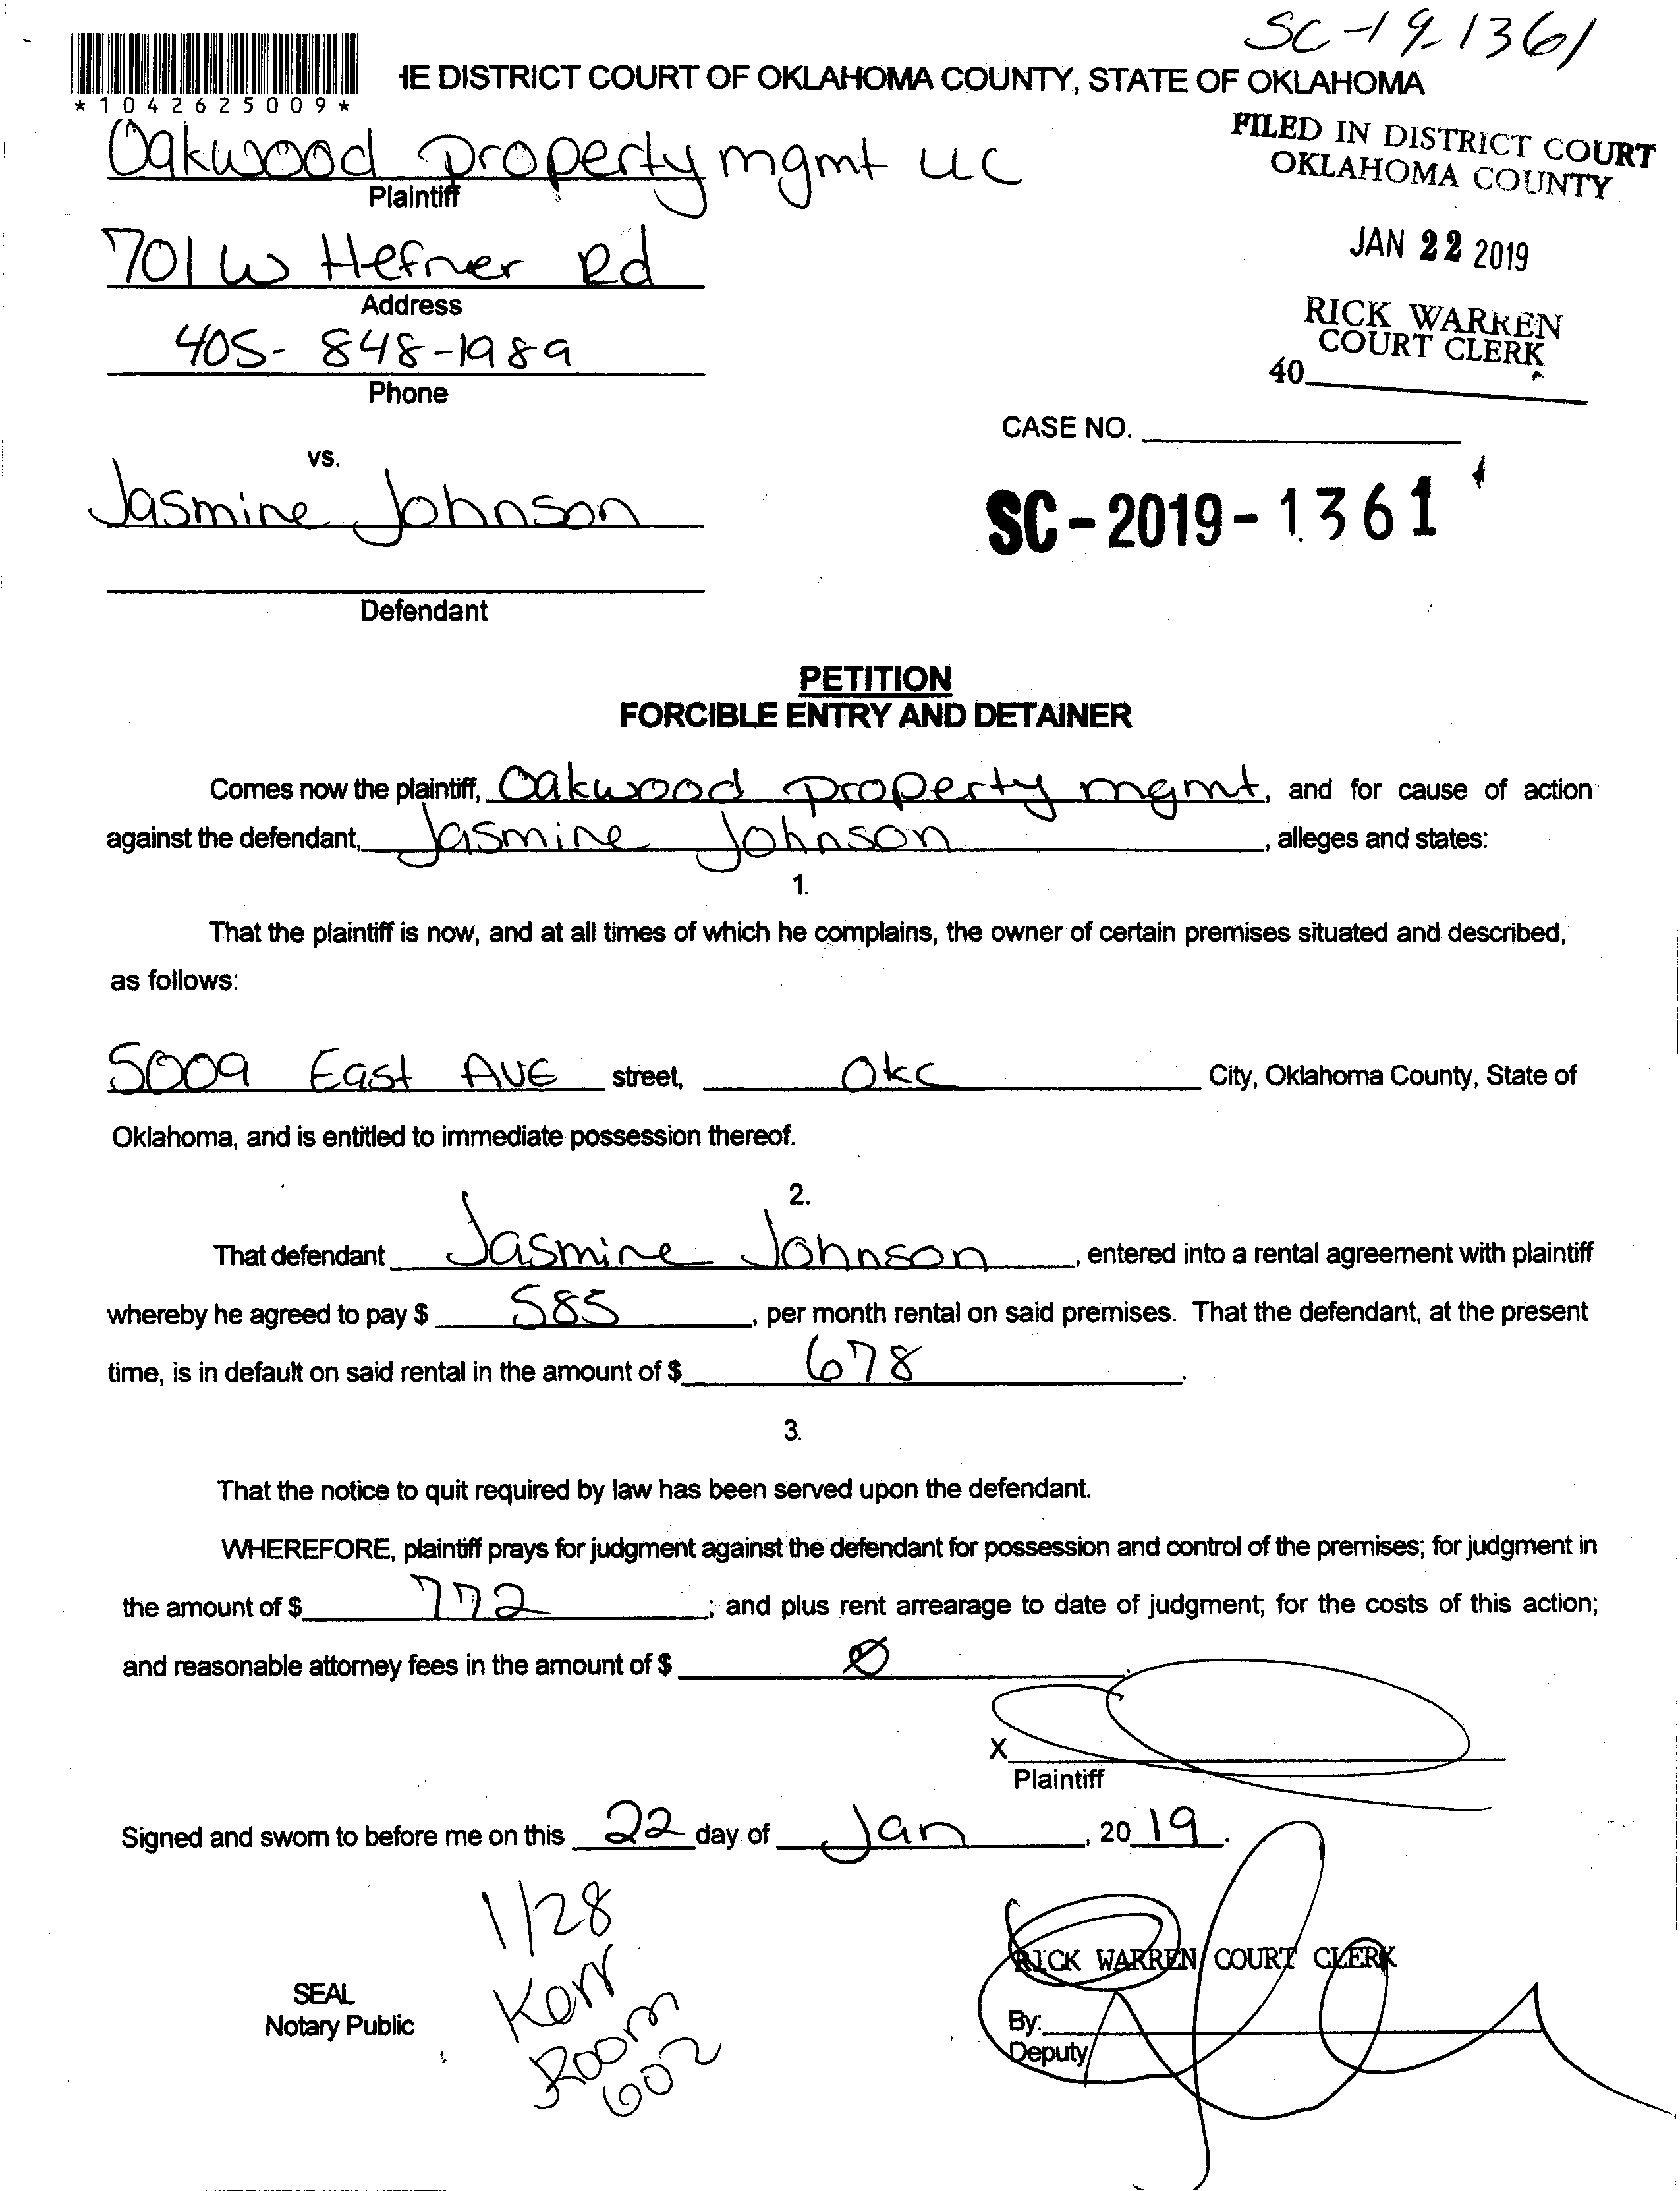 SC-19-1361
HE DISTRICT COURT OF OKLAHOMA COUNTY, STATE OF OKLAHOMA
*1042625009*
FILED IN DISTRICT COURT
OKLAHOMA COUNTY
Oakwood property mgmt LLC
Plaintiff
JAN 22 2019
701 W Hefner Rd
Address
RICK WARREN
COURT CLERK
405-848-1989
40
Phone
CASE NO.
vs.
Jasmine Johnson
SC-2019-1361
Defendant
PETITION
FORCIBLE ENTRY AND DETAINER
Comes now the plaintiff, Oakwood property mgmt, and for cause of action
against the defendant, Jasmine Johnson, alleges and states:
1.
That the plaintiff is now, and at all times of which he complains, the owner of certain premises situated and described,
as follows:
5009 East AVE street, OKC City, Oklahoma County, State of
Oklahoma, and is entitled to immediate possession thereof.
2.
That defendant Jasmine Johnson, entered into a rental agreement with plaintiff
whereby he agreed to pay $ 585, per month rental on said premises. That the defendant, at the present
time, is in default on said rental in the amount of $ 678.
3.
That the notice to quit required by law has been served upon the defendant.
WHEREFORE, plaintiff prays for judgment against the defendant for possession and control of the premises; for judgment in
the amount of $ 772; and plus rent arrearage to date of judgment; for the costs of this action;
and reasonable attorney fees in the amount of $ 0.
X
Plaintiff
Signed and sworn to before me on this 22 day of Jan, 2019.
1/28
Kerr
Room
602
RICK WARREN COURT CLERK
SEAL
Notary Public
By:
Deputy